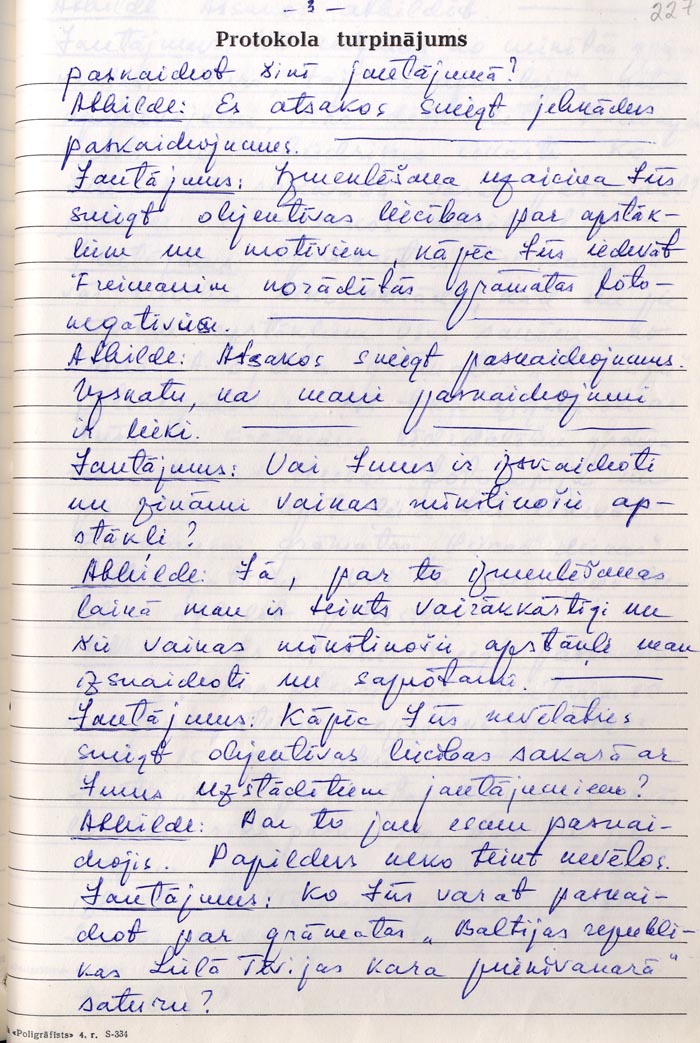 - 3 -
227
Protokola turpinājums
paskaidrot šinī jautājumā?
Atbilde: Es atsakos sniegt jebkādus
paskaidrojumus.
Jautājums: Izmeklēšana uzaicina Jūs
sniegt objektīvas liecības par apstāk-
ļiem un motīviem kāpēc Jūs iedevāt
Freimanim norādītās grāmatas foto-
negatīvus.
Atbilde: Atsakos sniegt paskaidrojumus.
Uzskatu, ka mani paskaidrojumi
ir lieki.
Jautājums: Vai Jums ir izskaidroti
un zināmi vainas mīkstinošie ap-
stākļi?
Atbilde: Jā, par to izmeklēšanas
laikā man ir teikts vairākkārtīgi un
šie vainas mīkstinošie apstākļi man
izskaidroti un saprotami.
Jautājums: Kāpēc Jūs nevēlaties
sniegt objektīvas liecības sakarā ar
Jums uzstādītiem jautājumiem?
Atbilde: Par to jau esmu paskai-
drojis. Papildus neko teikt nevēlos.
Jautājums: Ko Jūs varat paskai-
drot par grāmatas „Baltijas republi-
kas Lielā Tēvijas kara priekšvakarā"
saturu?
«Poligrāfists» 4. r. S-334